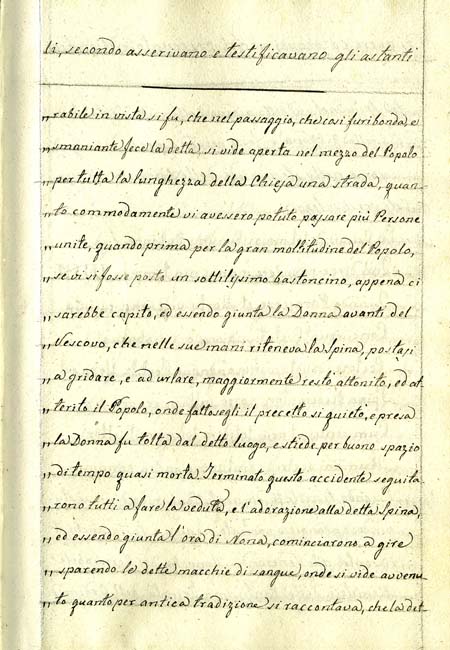 li, secondo asserivano e testificavano gli astanti
„rabile in vista si fu, che nel passaggio, che così furibonda, e
„smaniante fece la detta si vide aperta nel mezzo del Popolo
„per tutta la lunghezza della Chiesa una strada, quan-
„to commodamente vi avessero potuto passare più Persone
„unite, quando prima per la gran moltitudine del Popolo,
„se vi si fosse posto un sottilissimo bastoncino, appena ci
„sarebbe capito, ed essendo giunta la Donna avanti del
„Vescovo, che nelle sue mani riteneva la Spina, postasi
„a gridare, e ad urlare, maggiormente restò attonito, ed at
„terito il Popolo, onde fattosegli il precetto si quietò, e presa
„la Donna fu tolta dal detto luogo, e stiede per buono spazio
„di tempo quasi morta. Terminato questo accidente seguita
„rono tutti a fare la veduta, e l'adorazione alla detta Spina,
„ed essendo giunta l'ora di Nona, cominciarono a gire
„sparendo le dette macchie di sangue, onde si vide avvenu
„to quanto per antica tradizione si raccontava, che la det